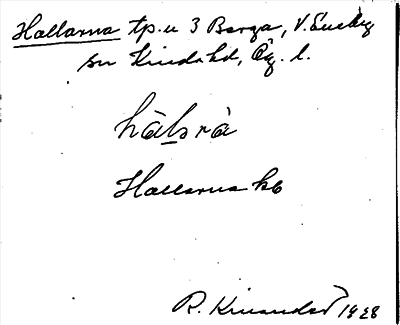 Hallarna tp. u 3 Berga, V. Eneby
sn Kinda hd, Ög. l.
hàl̠ṣrà
Hallarna kb
R. Kinander 1928